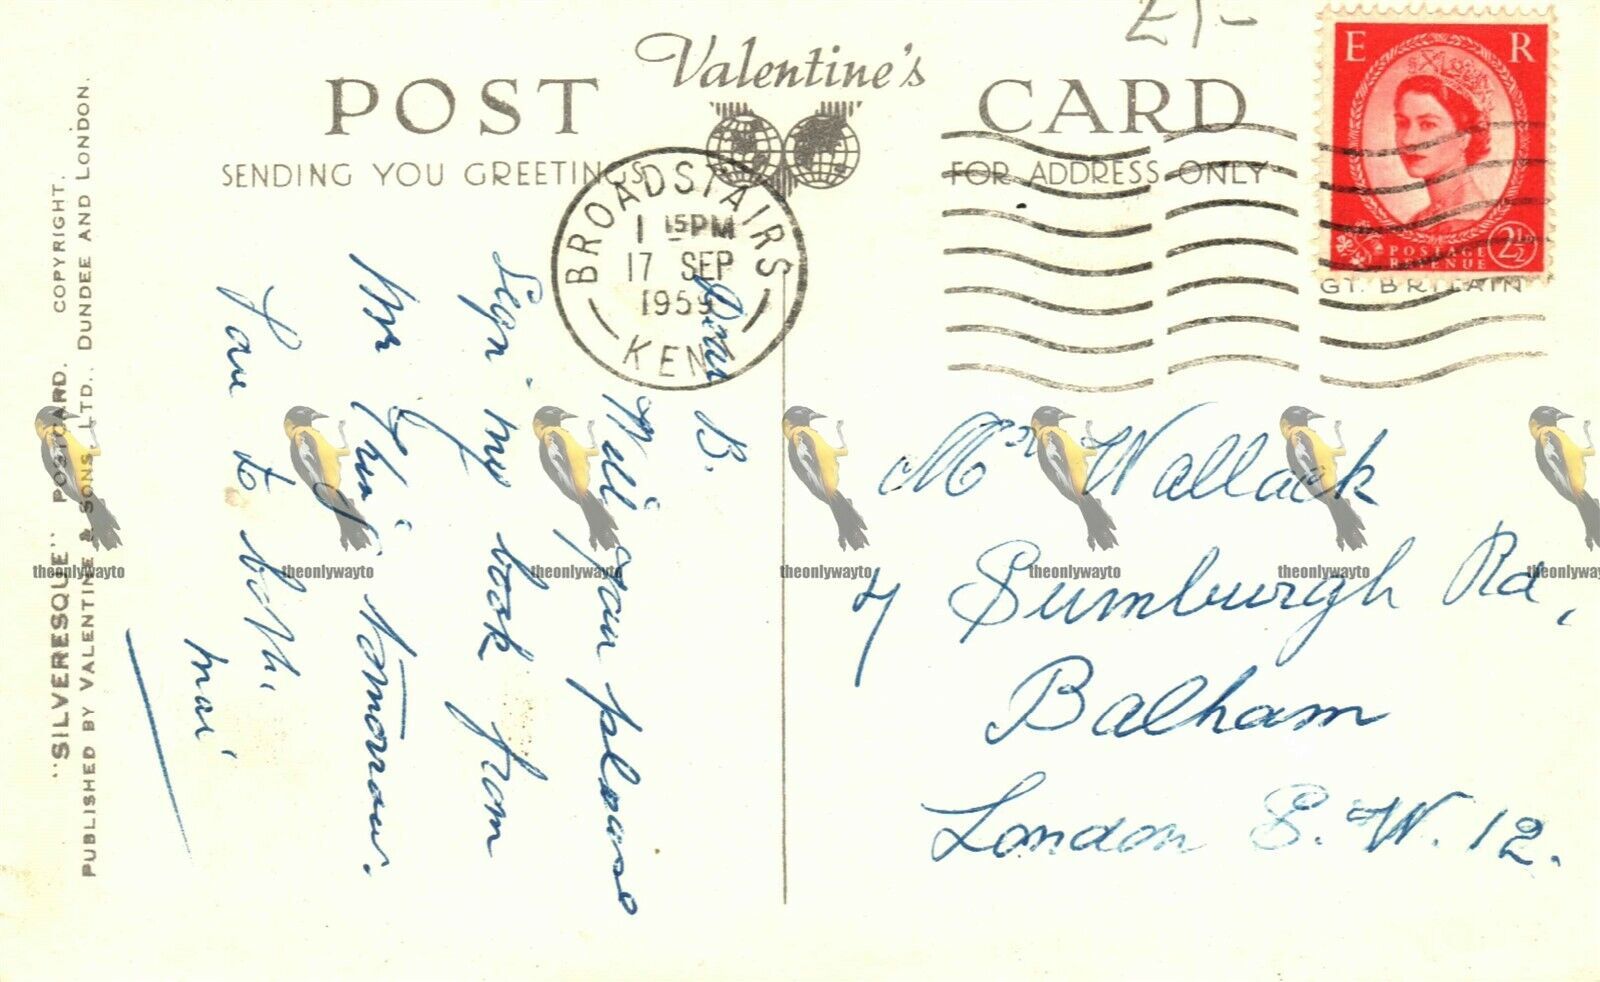 £1-
Valentine's
POST CARD
SENDING YOU GREETINGS
FOR ADDRESS ONLY
BROADSTAIRS
1 15PM
17 SEP
1959
KENT
E R
POSTAGE
REVENUE
2½
GT. BRITAIN
Dear B.
Will you please
sign my book from
Mr tomorrow.
Love to both.
Mai
Mr Wallack
7 Sumburgh Rd,
Balham
London S.W.12.
"SILVERESQUE" POSTCARD. COPYRIGHT.
PUBLISHED BY VALENTINE & SONS, LTD., DUNDEE AND LONDON.
theonlywayto
theonlywayto
theonlywayto
theonlywayto
theonlywayto
theonlywayto
theonlywayto